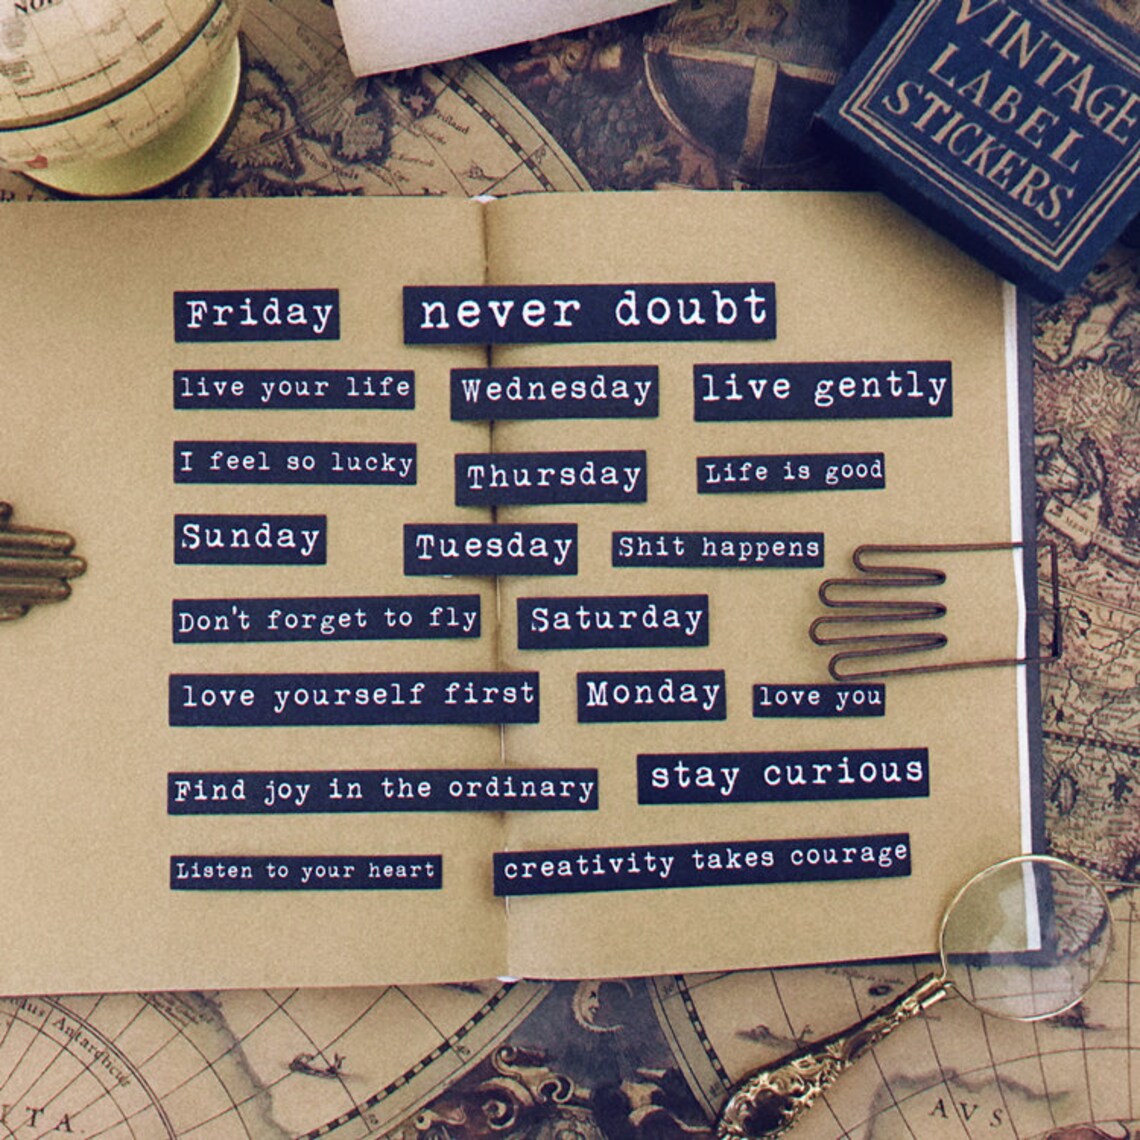 NO
VINTAGE
LABEL
STICKERS.
Friday never doubt
live your life Wednesday live gently
I feel so lucky Thursday Life is good
Sunday Tuesday Shit happens
Don't forget to fly Saturday
love yourself first Monday love you
Find joy in the ordinary stay curious
Listen to your heart creativity takes courage
Antarcticus
ITA.
AVS